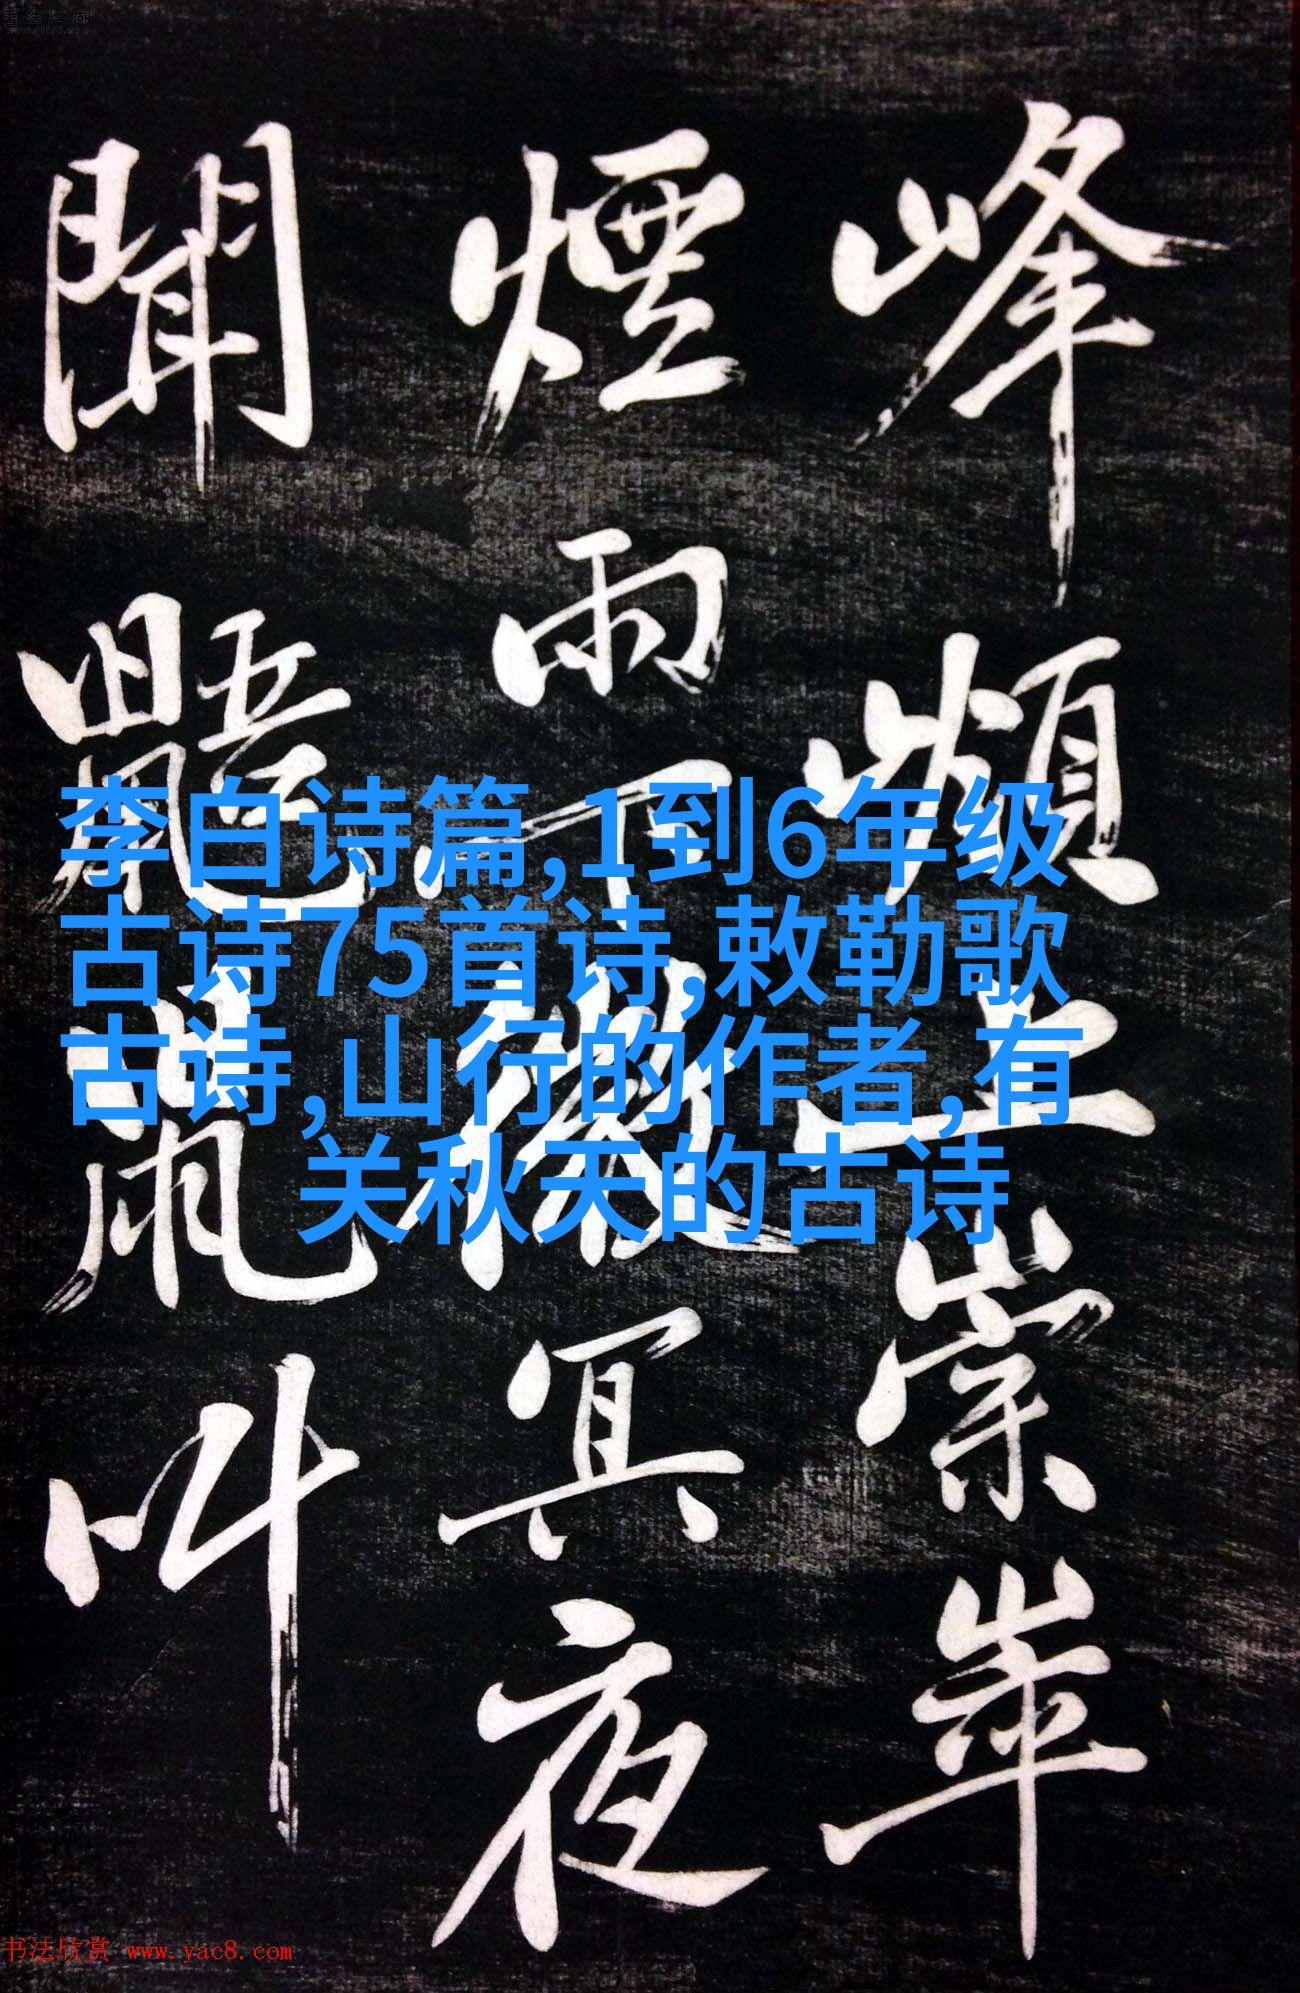 峰頻上崇崒
煙雨下微冥夜
聞鼯鼠叫
李白诗篇,1到6年级
古诗75首诗,敕勒歌
古诗,山行的作者,有
关秋天的古诗
书法欣赏 www.yac8.com